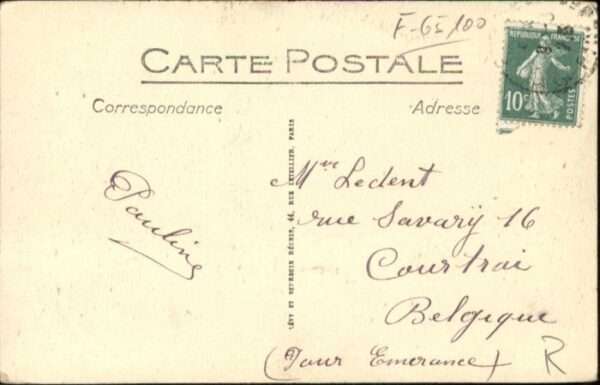 F-65100
REPUBLIQUE FRANÇAISE
10c
POSTES
CARTE POSTALE
Correspondance
Adresse
LÉVY ET NEURDEIN RÉUNIS, 44, RUE LETELLIER, PARIS
Pauline
Mme Ledent
rue Savary 16
Courtrai
Belgique
(Pour Emerance)
R